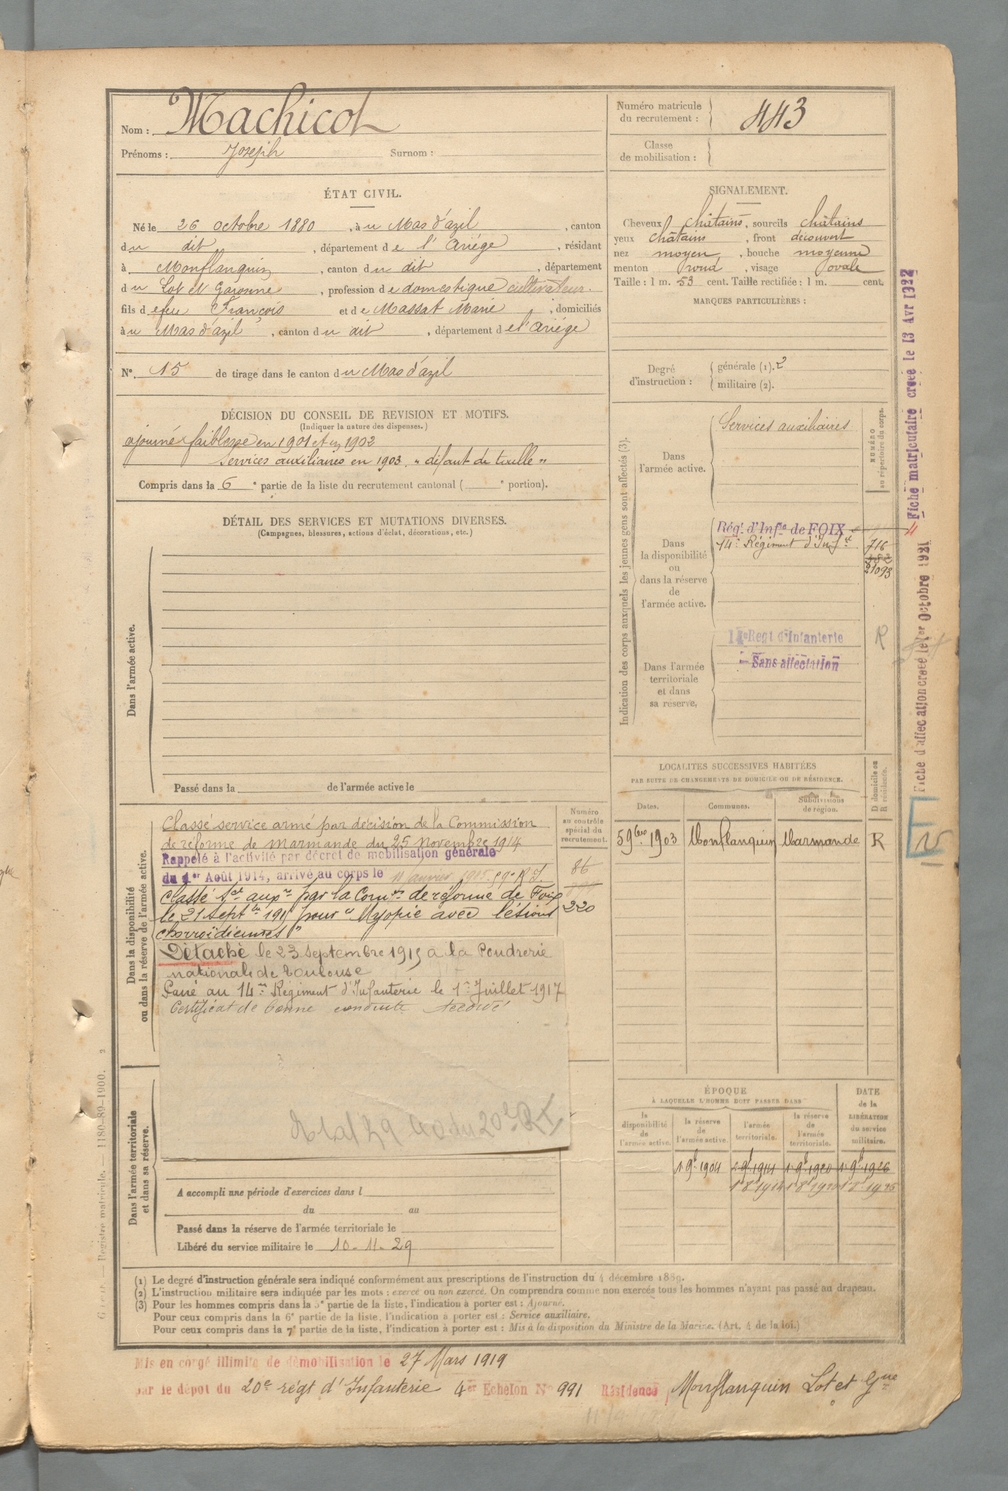 Nom : Machicot
Prénoms : Joseph Surnom :
Numéro matricule du recrutement : 443
Classe de mobilisation :
ÉTAT CIVIL.
Né le 26 octobre 1880, à u Mas d'azil, canton
d u dit, département d e l'Ariége, résidant
à Monflanquin, canton d u dit, département
d u Lot et Garonne, profession d e domestique cultivateur.
fils d e feu François et d e Massat Marie, domiciliés
à u Mas d'azil, canton d u dit, département d e l'ariége
N° 15 de tirage dans le canton d u Mas d'azil
SIGNALEMENT.
Cheveux châtains, sourcils châtains
yeux châtains, front découvert
nez moyen, bouche moyenne
menton rond, visage ovale
Taille : 1 m. 53 cent. Taille rectifiée : 1 m. cent.
MARQUES PARTICULIÈRES :
Degré d'instruction : générale (1). 2
militaire (2).
DÉCISION DU CONSEIL DE REVISION ET MOTIFS.
(Indiquer la nature des dispenses.)
ajourné faiblesse en 1901 et en 1902
Services auxiliaires en 1903. " défaut de taille "
Compris dans la 6e partie de la liste du recrutement cantonal ( e portion).
DÉTAIL DES SERVICES ET MUTATIONS DIVERSES.
(Campagnes, blessures, actions d'éclat, décorations, etc.)
Dans l'armée active.
Passé dans la de l'armée active le
Indication des corps auxquels les jeunes gens sont affectés (3).
NUMÉRO au répertoire du corps.
Dans l'armée active.
Services auxiliaires
Dans la disponibilité ou dans la réserve de l'armée active.
Rég. d'Infie de FOIX
14e Régiment d'Infie
716
21093
Dans l'armée territoriale et dans sa réserve.
Regt d'Infanterie
Sans affectation
R
Fiche matriculaire créée le 13 Avr 1922
Fiche d'affectation créée le 1er Octobre 1921
LOCALITÉS SUCCESSIVES HABITÉES
PAR SUITE DE CHANGEMENTS DE DOMICILE OU DE RÉSIDENCE.
Dates. Communes. Subdivisions de région. D domicile ou R résidence.
1903 Monflanquin Marmande R
E
15
Dans la disponibilité ou dans la réserve de l'armée active.
Numéro au contrôle spécial du recrutement.
86
220
Classé service armé par décision de la Commission
de réforme de Marmande du 25 novembre 1914
Rappelé à l'activité par décret de mobilisation générale
du 1er Août 1914, arrivé au corps le
classé Sce auxre par la Comon de réforme de Foix
le 21 Septbre 1915 pour " Myopie avec lésions
choroïdiennes "
Détaché le 23 septembre 1915 à la Poudrerie
nationale de Toulouse
Passé au 14me Régiment d'Infanterie le 1er Juillet 1917
Certificat de bonne conduite Accordé
Dans l'armée territoriale et dans sa réserve.
A accompli une période d'exercices dans l
du au
Passé dans la réserve de l'armée territoriale le
Libéré du service militaire le 10-11-29
ÉPOQUE
À LAQUELLE L'HOMME DOIT PASSER DANS
DATE de la LIBÉRATION du service militaire.
la disponibilité de l'armée active. la réserve de l'armée active. l'armée territoriale. la réserve de l'armée territoriale.
1 9b 1904 1 9b 1914 1 9b 1920 1 9b 1926
(1) Le degré d'instruction générale sera indiqué conformément aux prescriptions de l'instruction du 4 décembre 1889.
(2) L'instruction militaire sera indiquée par les mots : exercé ou non exercé. On comprendra comme non exercés tous les hommes n'ayant pas passé au drapeau.
(3) Pour les hommes compris dans la 5e partie de la liste, l'indication à porter est : Ajourné.
Pour ceux compris dans la 6e partie de la liste, l'indication à porter est : Service auxiliaire.
Pour ceux compris dans la 7e partie de la liste, l'indication à porter est : Mis à la disposition du Ministre de la Marine. (Art. 4 de la loi.)
Registre matricule. — 1180-89-1900.
Mis en congé illimité de démobilisation le 27 Mars 1919
par le dépot du 20e régt d'Infanterie 4er Echelon N° 991 Résidence Monflanquin Lot et Gne